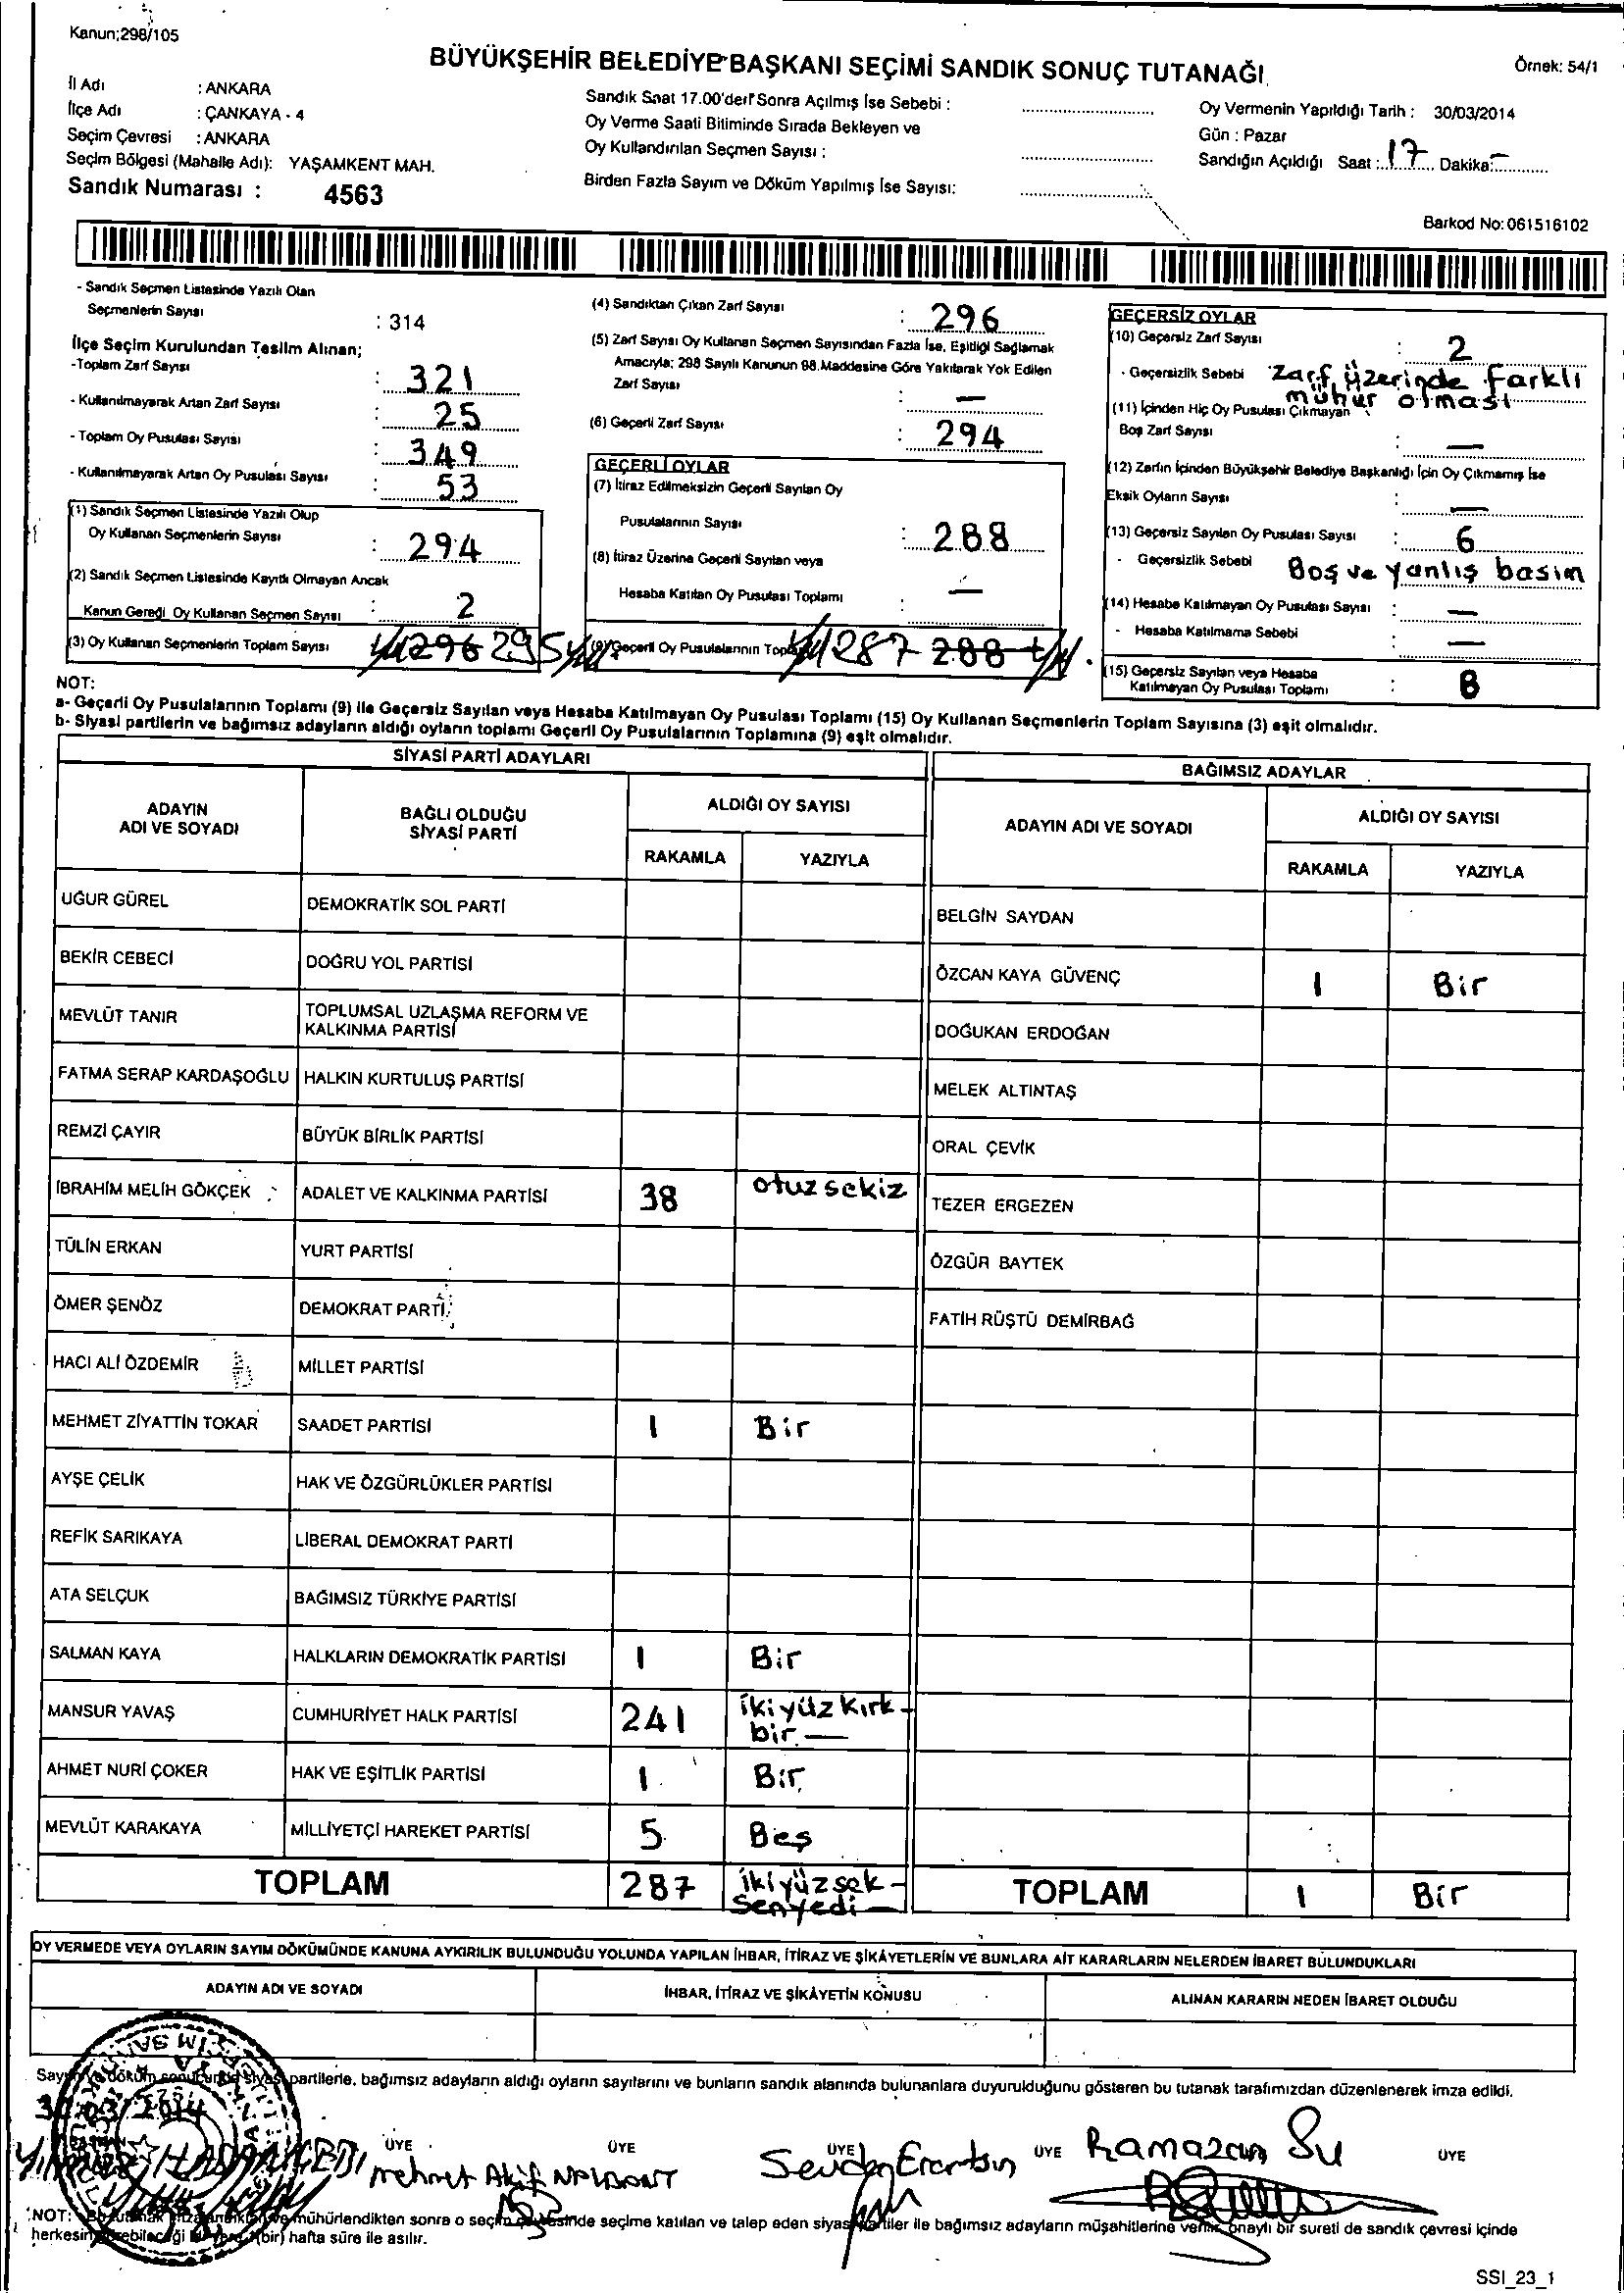 Kanun;298/105
BÜYÜKŞEHİR BELEDİYE BAŞKANI SEÇİMİ SANDIK SONUÇ TUTANAĞI
Örnek: 54/1
İl Adı : ANKARA
İlçe Adı : ÇANKAYA - 4
Seçim Çevresi : ANKARA
Seçim Bölgesi (Mahalle Adı): YAŞAMKENT MAH.
Sandık Numarası : 4563
Sandık Saat 17.00'den Sonra Açılmış İse Sebebi :
Oy Verme Saati Bitiminde Sırada Bekleyen ve
Oy Kullandırılan Seçmen Sayısı :
Birden Fazla Sayım ve Döküm Yapılmış İse Sayısı:
Oy Vermenin Yapıldığı Tarih : 30/03/2014
Gün : Pazar
Sandığın Açıldığı Saat : 17 Dakika: -
Barkod No: 061516102
- Sandık Seçmen Listesinde Yazılı Olan
Seçmenlerin Sayısı : 314
İlçe Seçim Kurulundan Teslim Alınan;
-Toplam Zarf Sayısı : 321
- Kullanılmayarak Artan Zarf Sayısı : 25
- Toplam Oy Pusulası Sayısı : 349
- Kullanılmayarak Artan Oy Pusulası Sayısı : 53
(1) Sandık Seçmen Listesinde Yazılı Olup
Oy Kullanan Seçmenlerin Sayısı : 294
(2) Sandık Seçmen Listesinde Kayıtlı Olmayan Ancak
Kanun Gereği Oy Kullanan Seçmen Sayısı : 2
(3) Oy Kullanan Seçmenlerin Toplam Sayısı 296 295
(4) Sandıktan Çıkan Zarf Sayısı : 296
(5) Zarf Sayısı Oy Kullanan Seçmen Sayısından Fazla İse, Eşitliği Sağlamak
Amacıyla; 298 Sayılı Kanunun 98.Maddesine Göre Yakılarak Yok Edilen
Zarf Sayısı : —
(6) Geçerli Zarf Sayısı : 294
GEÇERLİ OYLAR
(7) İtiraz Edilmeksizin Geçerli Sayılan Oy
Pusulalarının Sayısı : 288
(8) İtiraz Üzerine Geçerli Sayılan veya
Hesaba Katılan Oy Pusulası Toplamı : —
(9) Geçerli Oy Pusulalarının Toplamı 287 288
GEÇERSİZ OYLAR
(10) Geçersiz Zarf Sayısı : 2
- Geçersizlik Sebebi Zarf üzerinde farklı
mühür olması
(11) İçinden Hiç Oy Pusulası Çıkmayan
Boş Zarf Sayısı : —
(12) Zarfın İçinden Büyükşehir Belediye Başkanlığı İçin Oy Çıkmamış İse
Eksik Oyların Sayısı : —
(13) Geçersiz Sayılan Oy Pusulası Sayısı : 6
- Geçersizlik Sebebi Boş ve yanlış basım
(14) Hesaba Katılmayan Oy Pusulası Sayısı : —
- Hesaba Katılmama Sebebi : —
(15) Geçersiz Sayılan veya Hesaba
Katılmayan Oy Pusulası Toplamı : 8
NOT:
a- Geçerli Oy Pusulalarının Toplamı (9) ile Geçersiz Sayılan veya Hesaba Katılmayan Oy Pusulası Toplamı (15) Oy Kullanan Seçmenlerin Toplam Sayısına (3) eşit olmalıdır.
b- Siyasi partilerin ve bağımsız adayların aldığı oyların toplamı Geçerli Oy Pusulalarının Toplamına (9) eşit olmalıdır.
SİYASİ PARTİ ADAYLARI
ADAYIN ADI VE SOYADI
BAĞLI OLDUĞU SİYASİ PARTİ
ALDIĞI OY SAYISI
RAKAMLA YAZIYLA
UĞUR GÜREL DEMOKRATİK SOL PARTİ
BEKİR CEBECİ DOĞRU YOL PARTİSİ
MEVLÜT TANIR TOPLUMSAL UZLAŞMA REFORM VE
KALKINMA PARTİSİ
FATMA SERAP KARDAŞOĞLU HALKIN KURTULUŞ PARTİSİ
REMZİ ÇAYIR BÜYÜK BİRLİK PARTİSİ
İBRAHİM MELİH GÖKÇEK ADALET VE KALKINMA PARTİSİ 38 otuzsekiz
TÜLİN ERKAN YURT PARTİSİ
ÖMER ŞENÖZ DEMOKRAT PARTİ
HACI ALİ ÖZDEMİR MİLLET PARTİSİ
MEHMET ZİYATTİN TOKAR SAADET PARTİSİ 1 Bir
AYŞE ÇELİK HAK VE ÖZGÜRLÜKLER PARTİSİ
REFİK SARIKAYA LİBERAL DEMOKRAT PARTİ
ATA SELÇUK BAĞIMSIZ TÜRKİYE PARTİSİ
SALMAN KAYA HALKLARIN DEMOKRATİK PARTİSİ 1 Bir
MANSUR YAVAŞ CUMHURİYET HALK PARTİSİ 241 ikiyüzkırk-
bir —
AHMET NURİ ÇOKER HAK VE EŞİTLİK PARTİSİ 1 Bir
MEVLÜT KARAKAYA MİLLİYETÇİ HAREKET PARTİSİ 5 Beş
TOPLAM 287 ikiyüzsek-
senyedi —
BAĞIMSIZ ADAYLAR
ADAYIN ADI VE SOYADI
ALDIĞI OY SAYISI
RAKAMLA YAZIYLA
BELGİN SAYDAN
ÖZCAN KAYA GÜVENÇ 1 Bir
DOĞUKAN ERDOĞAN
MELEK ALTINTAŞ
ORAL ÇEVİK
TEZER ERGEZEN
ÖZGÜR BAYTEK
FATİH RÜŞTÜ DEMİRBAĞ
TOPLAM 1 Bir
OY VERMEDE VEYA OYLARIN SAYIM DÖKÜMÜNDE KANUNA AYKIRILIK BULUNDUĞU YOLUNDA YAPILAN İHBAR, İTİRAZ VE ŞİKÂYETLERİN VE BUNLARA AİT KARARLARIN NELERDEN İBARET BULUNDUKLARI
ADAYIN ADI VE SOYADI İHBAR, İTİRAZ VE ŞİKÂYETİN KONUSU ALINAN KARARIN NEDEN İBARET OLDUĞU
Sayım ve döküm sonucunda siyasi partilerle, bağımsız adayların aldığı oyların sayılarını ve bunların sandık alanında bulunanlara duyurulduğunu gösteren bu tutanak tarafımızdan düzenlenerek imza edildi.
30/03/2014
ÜYE ÜYE ÜYE ÜYE ÜYE
Mehmet Akif Ramazan Su
NOT: mühürlendikten sonra o seçim çevresinde seçime katılan ve talep eden siyasi partiler ile bağımsız adayların müşahitlerine verilir, onaylı bir sureti de sandık çevresi içinde
herkesin (bir) hafta süre ile asılır.
SSI_23_1